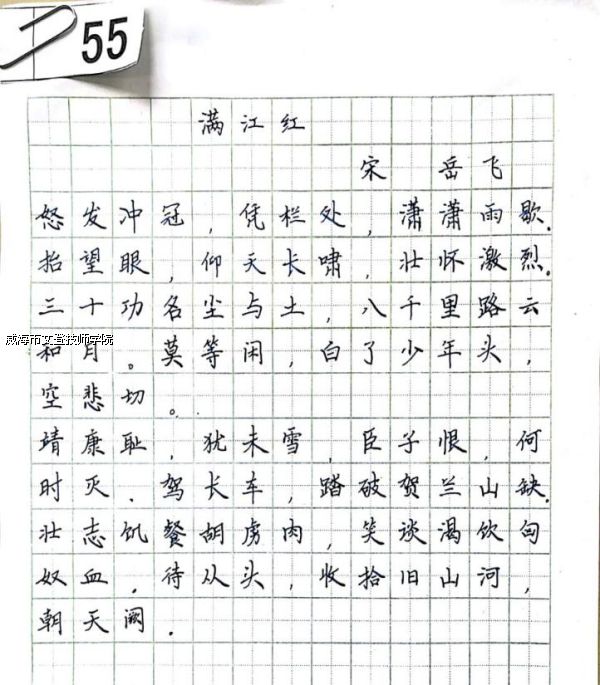 55
满江红
宋 岳飞
怒发冲冠,凭栏处,潇潇雨歇.
抬望眼,仰天长啸,壮怀激烈.
三十功名尘与土,八千里路云
威海市文登技师学院
和月。莫等闲,白了少年头,
空悲切。
靖康耻,犹未雪,臣子恨,何
时灭.驾长车,踏破贺兰山缺.
壮志饥餐胡虏肉,笑谈渴饮匈
奴血.待从头,收拾旧山河,
朝天阙.